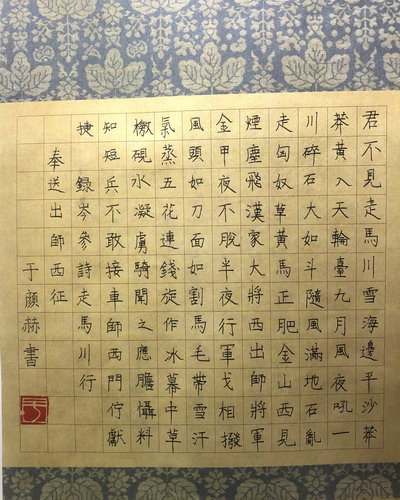 君不見走馬川雪海邊平沙莽
莽黃入天輪臺九月風夜吼一
川碎石大如斗隨風滿地石亂
走匈奴草黃馬正肥金山西見
煙塵飛漢家大將西出師將軍
金甲夜不脫半夜行軍戈相撥
風頭如刀面如割馬毛帶雪汗
氣蒸五花連錢旋作冰幕中草
檄硯水凝虜騎聞之應膽懾料
知短兵不敢接車師西門佇獻
捷 錄岑參詩走馬川行
奉送出師西征
于顏赫書